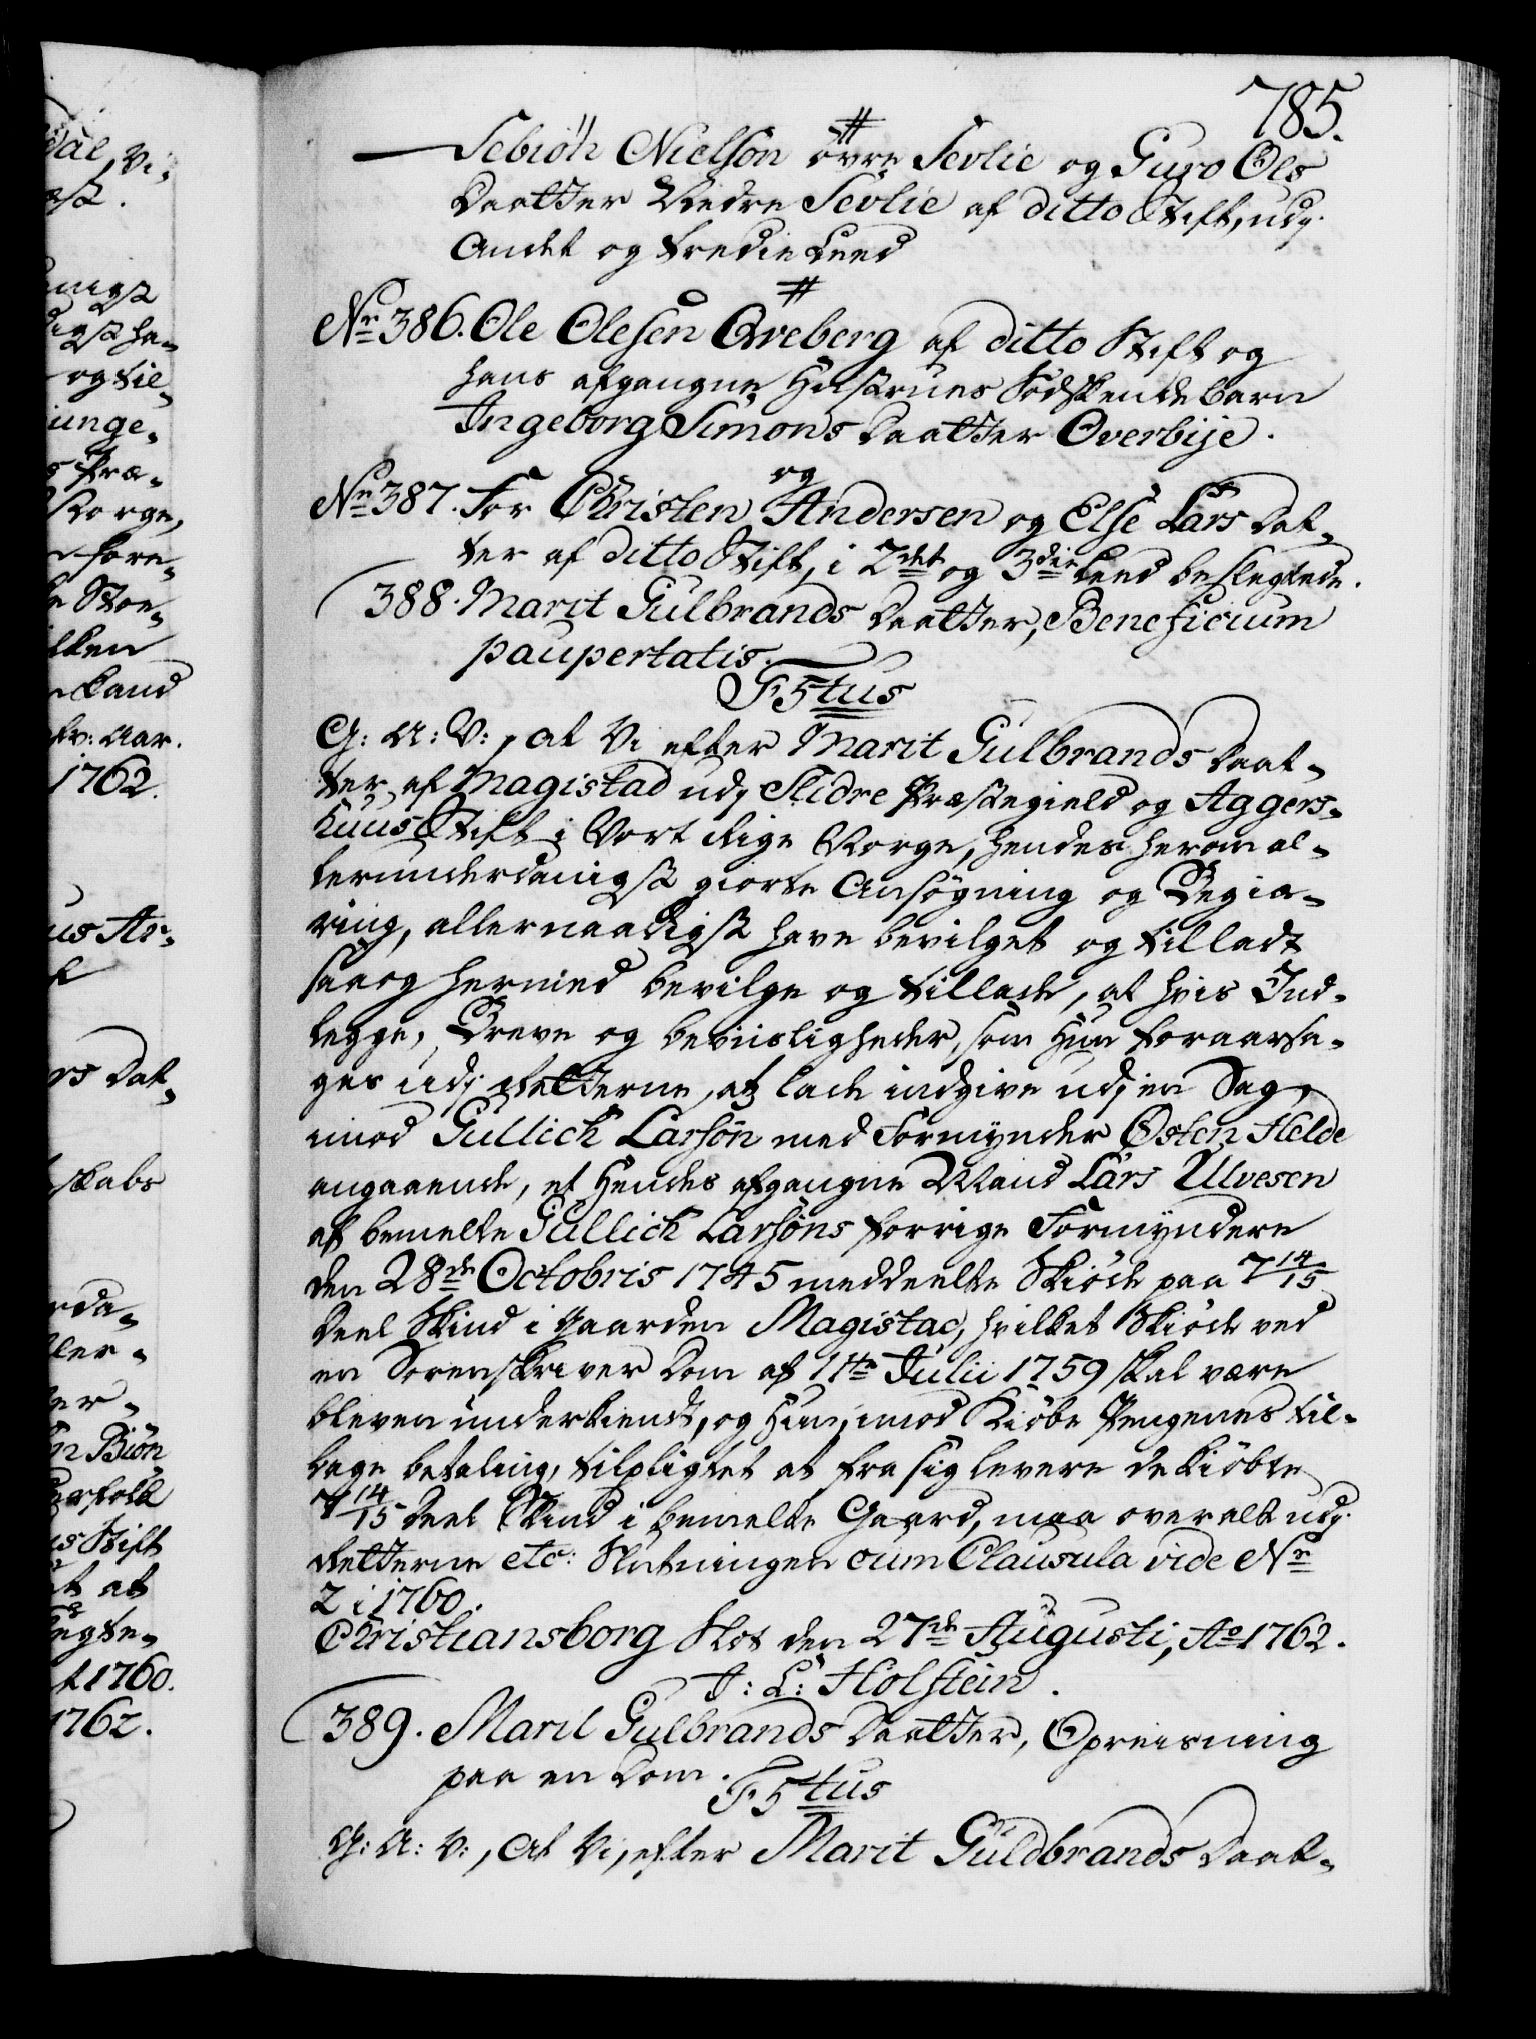 785.
#
Sebiøn Nielsøn øvre Sevlie og Guro Ols
Daatter Nedre Sevlie af ditto Stift, udj
Andet og tredie Leed
#
No 386. Ole Olesen Qveberg af ditto Stift og
hans afgangne Hustrues Södskendebarn
Ingeborg Simons Daatter Overbije.
og
No 387. For Christen Andersen og Else Lars Dat-
ter af ditto Stift, i 2det og 3die Leed beslegtede.
388. Marit Gulbrands Daatter, Beneficium
paupertatis.
F5tus
G: A: V:, at Vi efter Marit Gulbrands Daat-
ter, af Magistad udj Slidre Præstegield og Aggers-
huus Stift i Vort Rige Norge, hendes herom al-
lerunderdanigst giorte Ansøgning og Begiæ-
ring, allernaadigst have bevilget og tilladt
saa og hermed bevilge og tillade, at hvis Ind-
legge, Breve og beviisligheder, som Hun foraarsa-
ges udj Retterne, at lade indgive udj en Sag,
imod Gullich Larsøn med Formynder Østen Helde
angaaende, et Hendes afgangne Mand Lars Ulvesen
af bemelte Gullich Larsøns forrige Formyndere
den 28de Octobris 1745 meddeelte Skiøde paa 7 14/15
Deel Skind i Gaarden Magistad, hvilket Skiøde ved
en Sorenskriver Dom af 11te Julii 1759 skal være
bleven underkiendt, og Hun, imod Kiøbe Pengenes til-
bage betaling, tilpligtet at fra sig levere de kiøbte
7 14/15 Deel Skind i bemelte Gaard, maa overalt udj
Retterne etc: Slutningen cum Clausula vide No
2 i 1760.
Christiansborg Slot den 27de Augusti, Ao 1762.
J: L: Holstein.
389. Marit Gulbrands Daatter, Opreisning
paa en Dom.
F5tus
G: A: V:, At Vi, efter Marit Guldbrands Daat-